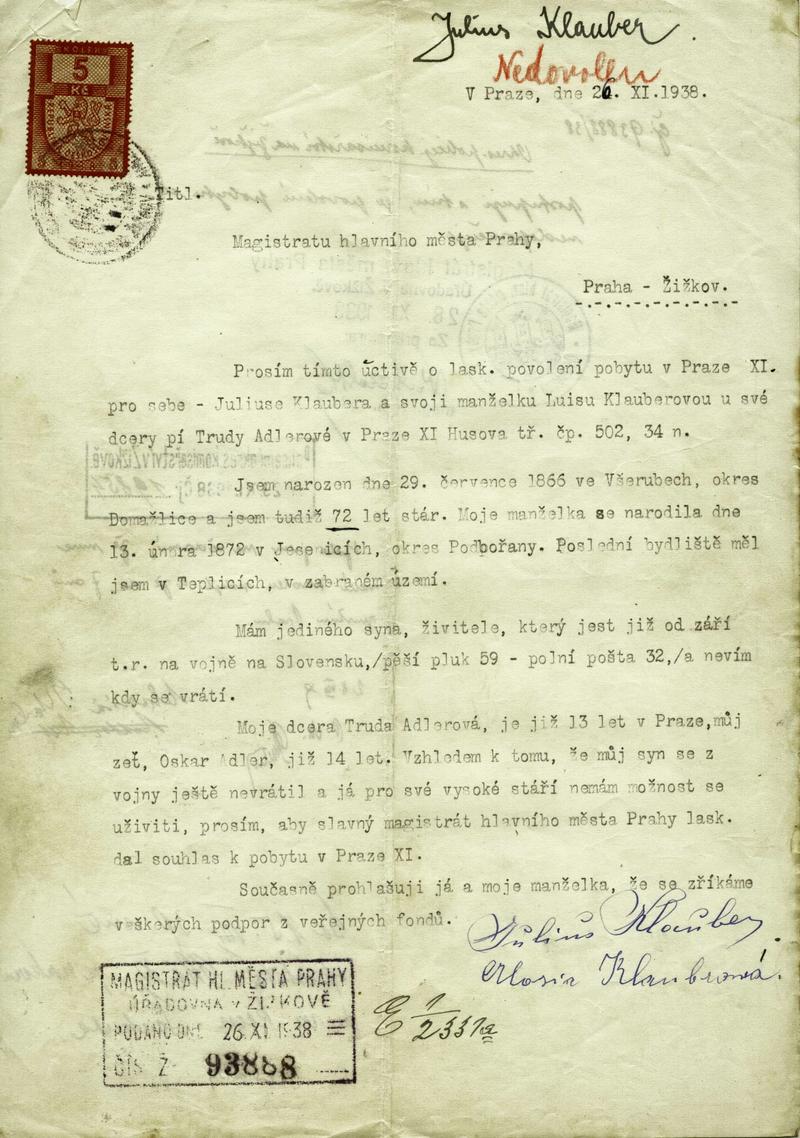 Julius Klauber.
Nedovolen
5
Kč
V Praze, dne 26. XI.1938.
Titl.
Magistratu hlavního města Prahy,
Praha - Žižkov.
Prosím tímto úctivě o lask. povolení pobytu v Praze XI.
pro sebe - Juliuse Klaubera a svoji manželku Luisu Klauberovou u své
dcery pí Trudy Adlerové v Praze XI Husova tř. čp. 502, 34 n.
Jsem narozen dne 29. července 1866 ve Všerubech, okres
Domažlice a jsem tudiž 72 let stár. Moje manželka se narodila dne
13. února 1872 v Jesenicích, okres Podbořany. Poslední bydliště měl
jsem v Teplicích, v zabraném území.
Mám jediného syna, živitele, který jest již od září
t.r. na vojně na Slovensku,/pěší pluk 59 - polní pošta 32,/a nevím
kdy se vrátí.
Moje dcera Truda Adlerová, je již 13 let v Praze,můj
zeť, Oskar Adler, již 14 let. Vzhledem k tomu, že můj syn se z
vojny ještě nevrátil a já pro své vysoké stáří nemám možnost se
uživiti, prosím, aby slavný magistrát hlavního města Prahy lask.
dal souhlas k pobytu v Praze XI.
Současně prohlašuji já a moje manželka, že se zříkáme
veškerých podpor z veřejných fondů.
Julius Klauber
Klaubrová.
MAGISTRÁT HL. MĚSTA PRAHY
ÚŘADOVNA v ŽIŽKOVĚ
PODÁNO DNE 26. XI 1938
ČÍS. Ž 93888